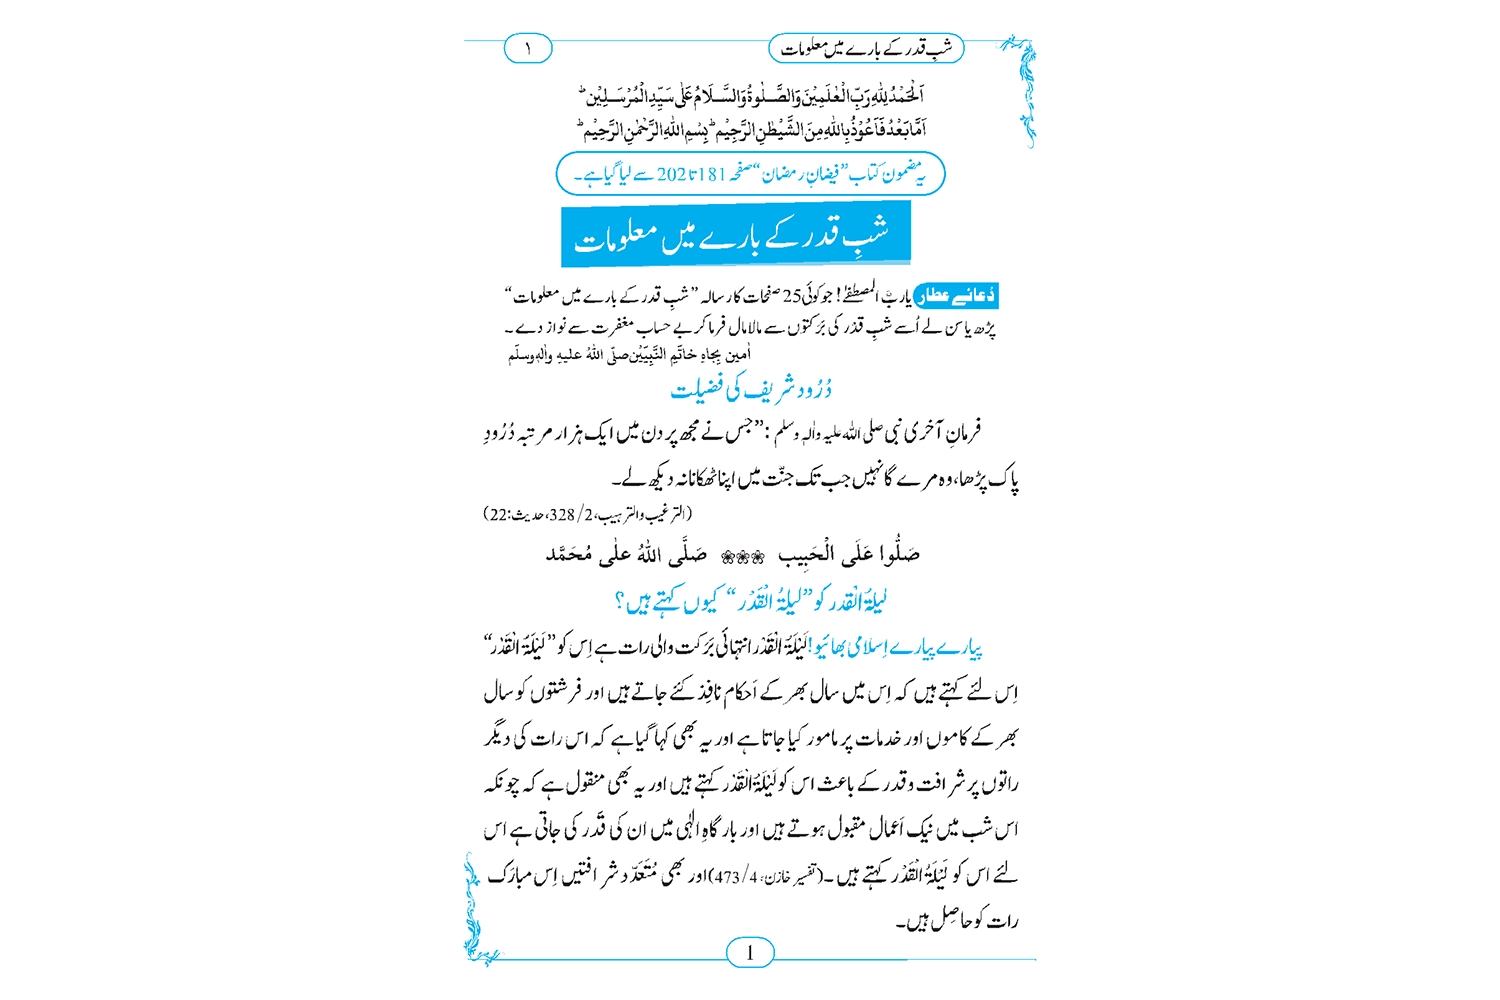 شبِ قدر کے بارے میں معلومات
۱
اَلْحَمْدُ لِلّٰہِ رَبِّ الْعٰلَمِیْنَ وَالصَّلٰوۃُ وَالسَّلَامُ عَلٰی سَیِّدِ الْمُرْسَلِیْن ؕ
اَمَّا بَعْدُ فَاَعُوْذُ بِاللّٰہِ مِنَ الشَّیْطٰنِ الرَّجِیْم ؕ بِسْمِ اللّٰہِ الرَّحْمٰنِ الرَّحِیْم ؕ
یہ مضمون کتاب ”فیضانِ رمضان“ صفحہ 181 تا 202 سے لیا گیا ہے۔
شبِ قدر کے بارے میں معلومات
دُعائے عطار یا ربَّ المصطفےٰ! جو کوئی 25 صفحات کا رسالہ ”شبِ قدر کے بارے میں معلومات“
پڑھ یا سن لے اُسے شبِ قَدْر کی بَرَکتوں سے مالا مال فرما کر بے حساب مغفرت سے نواز دے۔
اٰمین بِجاہِ خاتَمِ النَّبِیّیْن صلّی اللہُ علیہِ واٰلہٖ وسلّم
دُرُود شریف کی فضیلت
فرمانِ آخری نبی صلی اللہ علیہ واٰلہٖ وسلم :”جس نے مجھ پر دن میں ایک ہزار مرتبہ دُرُودِ
پاک پڑھا، وہ مرے گا نہیں جب تک جنّت میں اپنا ٹھکانا نہ دیکھ لے۔
(الترغیب والترہیب، 2/328، حدیث:22)
صَلُّوا عَلَی الْحَبِیب ❀❀❀ صَلَّی اللّٰہُ عَلٰی مُحَمَّد
لیلۃُ القدر کو ”لَیلۃُ الْقَدْر“ کیوں کہتے ہیں؟
پیارے پیارے اِسلامی بھائیو! لَیْلَۃُ الْقَدْر انتہائی بَرَکت والی رات ہے اِس کو ”لَیْلَۃُ الْقَدْر“
اِس لئے کہتے ہیں کہ اِس میں سال بھر کے اَحکام نافِذ کئے جاتے ہیں اور فرشتوں کو سال
بھر کے کاموں اور خدمات پر مامور کیا جاتا ہے اور یہ بھی کہا گیا ہے کہ اس رات کی دیگر
راتوں پر شرافت و قدر کے باعث اس کو لَیْلَۃُ الْقَدْر کہتے ہیں اور یہ بھی منقول ہے کہ چونکہ
اس شب میں نیک اَعمال مقبول ہوتے ہیں اور بارگاہِ الٰہی میں ان کی قَدْر کی جاتی ہے اس
لئے اس کو لَیْلَۃُ الْقَدْر کہتے ہیں۔ (تفسیر خازن، 4/473) اور بھی مُتَعَدَّد شرافتیں اِس مبارَک
رات کو حاصِل ہیں۔
1